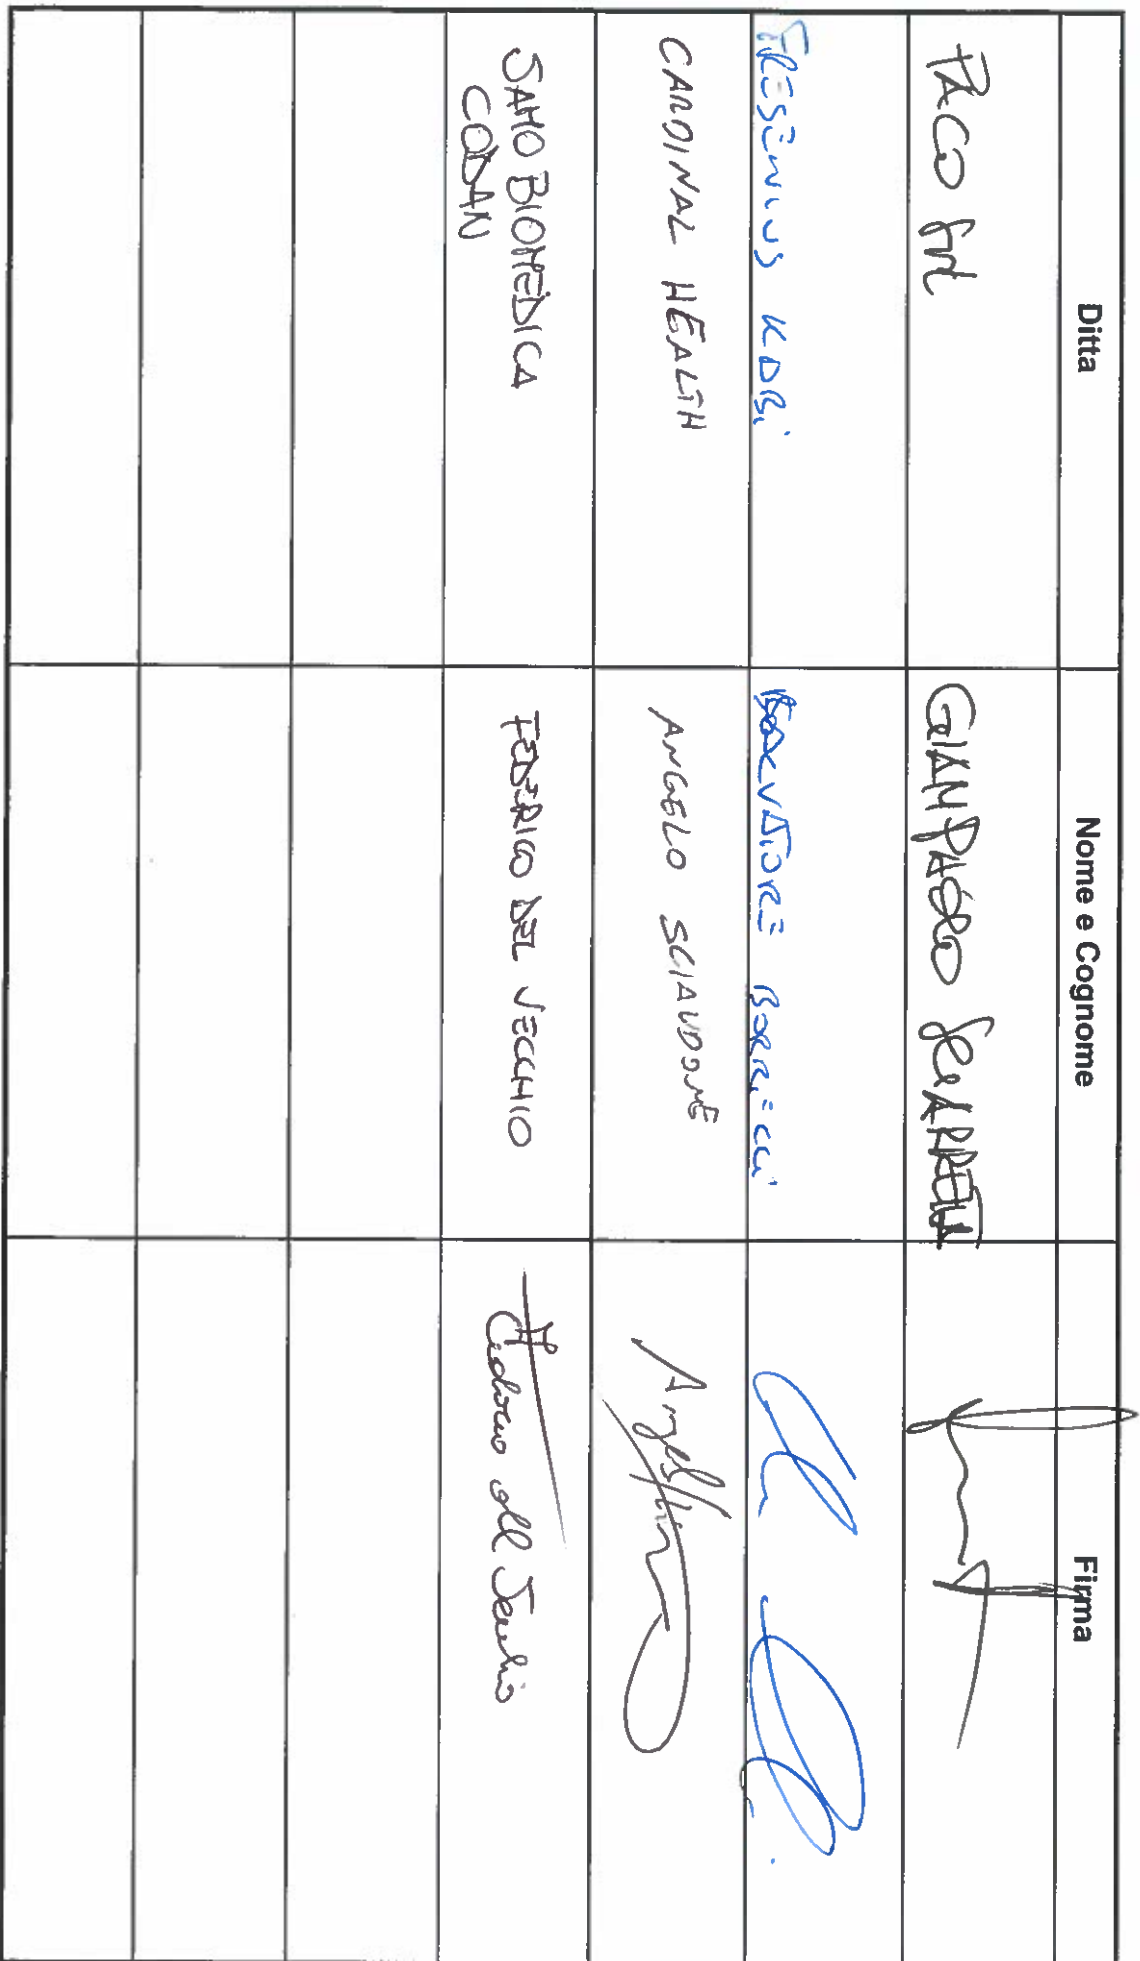 Ditta Nome e Cognome Firma
PACO Srl GIANPAOLO
FRESENIUS KABI SALVATORE
CARDINAL HEALTH ANGELO SCIAUDONE
SAMO BIOMEDICA FEDERICO DEL VECCHIO Federico del Vecchio
CODAN